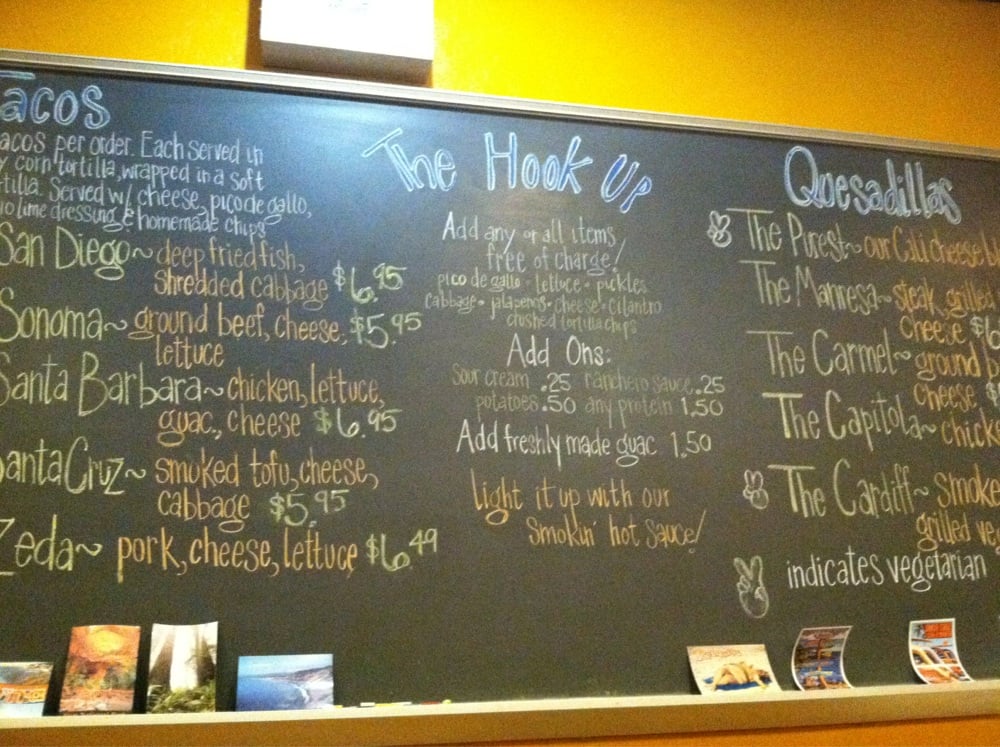 acos
acos per order. Each served in
y corn tortilla, wrapped in a soft
tilla. Served w/ cheese, pico de gallo,
lime dressing & homemade chips
San Diego~ deep fried fish,
shredded cabbage $6.95
Sonoma~ ground beef, cheese, $5.95
lettuce
Santa Barbara~ chicken, lettuce,
guac., cheese $6.95
Santa Cruz~ smoked tofu, cheese,
cabbage $5.95
Zeda~ pork, cheese, lettuce $6.49
The Hook Up
Add any or all items
free of charge!
pico de gallo • lettuce • pickles
cabbage • jalapenos • cheese • cilantro
crushed tortilla chips
Add Ons:
Sour cream .25 ranchero sauce .25
potatoes .50 any protein 1.50
Add freshly made guac 1.50
Light it up with our
Smokin' hot sauce!
Quesadillas
The Purest~ our Cali cheese bl
The Manresa~ steak, grilled
cheese $6
The Carmel~ ground b
cheese $
The Capitola~ chick
The Cardiff~ smoke
grilled veg
indicates vegetarian